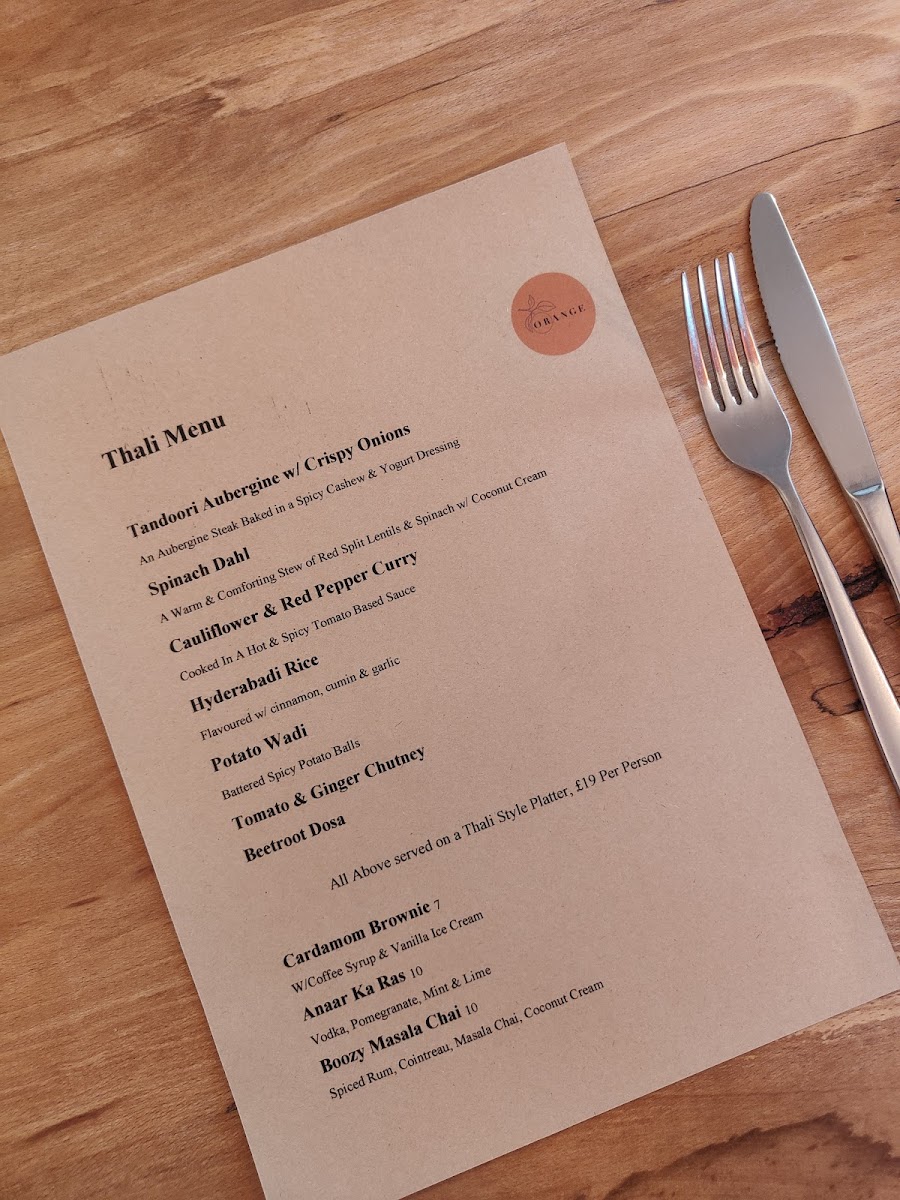 ORANGE
Thali Menu
Tandoori Aubergine w/ Crispy Onions
An Aubergine Steak Baked in a Spicy Cashew & Yogurt Dressing
Spinach Dahl
A Warm & Comforting Stew of Red Split Lentils & Spinach w/ Coconut Cream
Cauliflower & Red Pepper Curry
Cooked In A Hot & Spicy Tomato Based Sauce
Hyderabadi Rice
Flavoured w/ cinnamon, cumin & garlic
Potato Wadi
Battered Spicy Potato Balls
Tomato & Ginger Chutney
Beetroot Dosa
All Above served on a Thali Style Platter, £19 Per Person
Cardamom Brownie 7
W/Coffee Syrup & Vanilla Ice Cream
Anaar Ka Ras 10
Vodka, Pomegranate, Mint & Lime
Boozy Masala Chai 10
Spiced Rum, Cointreau, Masala Chai, Coconut Cream